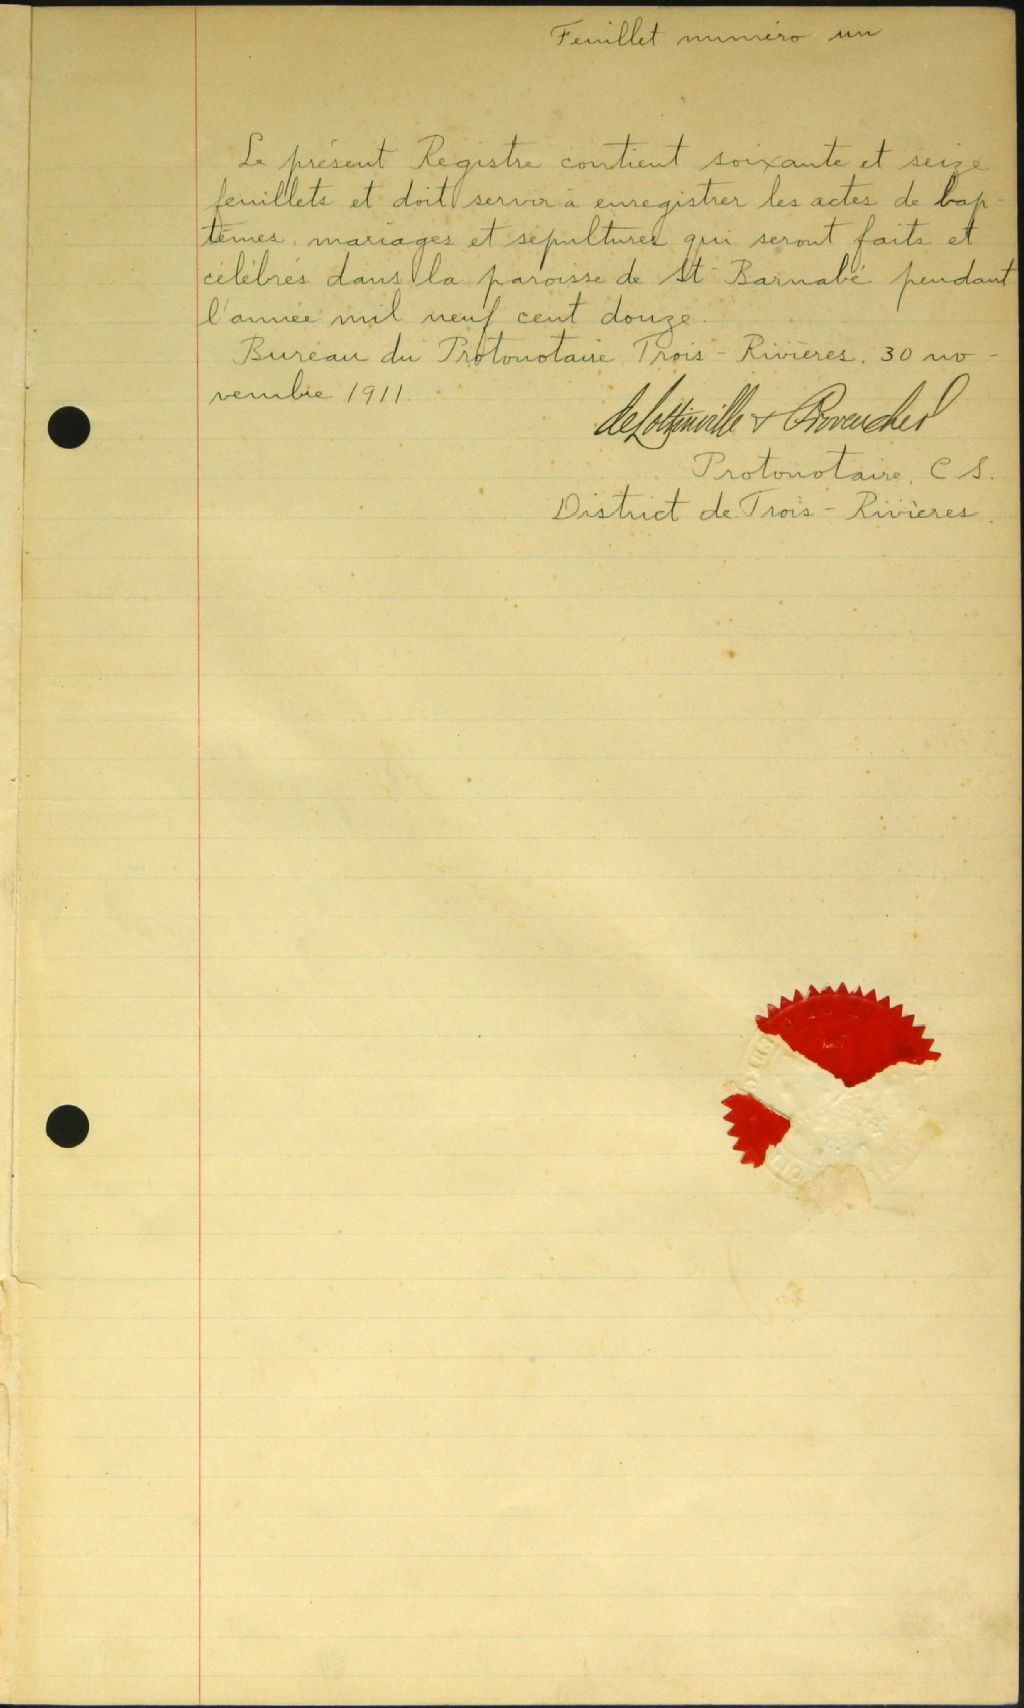 Feuillet numéro un
Le présent Registre contient soixante et seize
feuillets et doit servir à enregistrer les actes de bap-
têmes, mariages et sépultures qui seront faits et
célébrés dans la paroisse de St Barnabé pendant
l'année mil neuf cent douze.
Bureau du Protonotaire, Trois-Rivières, 30 no-
vembre 1911.
deLottinville & Provencher
Protonotaire, C. S.
District de Trois-Rivières.